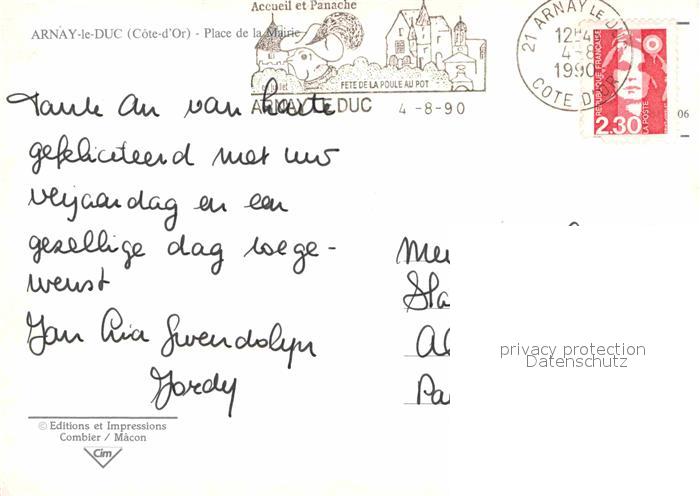 Accueil et Panache
ARNAY-le-DUC (Côte-d'Or) - Place de la Mairie
FETE DE LA POULE AU POT
ARNAY LE DUC 4-8-90
21 ARNAY LE DUC
1990
COTE D'OR
REPUBLIQUE FRANÇAISE
2,30
LA POSTE
06
Tante An van harte
gefeliciteerd met uw
verjaardag en een
gezellige dag toege-
wenst
Jan Ria Gwendolyn
Jordy
privacy protection
Datenschutz
© Editions et Impressions
Combier / Mâcon
Cim